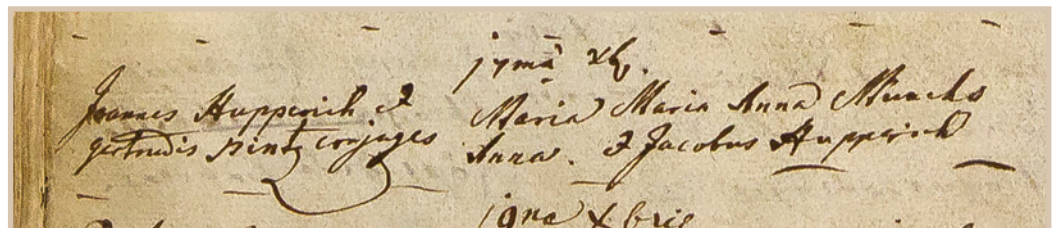 17mâ xb.
Joannes Hupperich &
gertrudis Hintz conjuges
Maria Maria Anna Muncks
Anna. & Jacobus Hupperich
19na Xbris